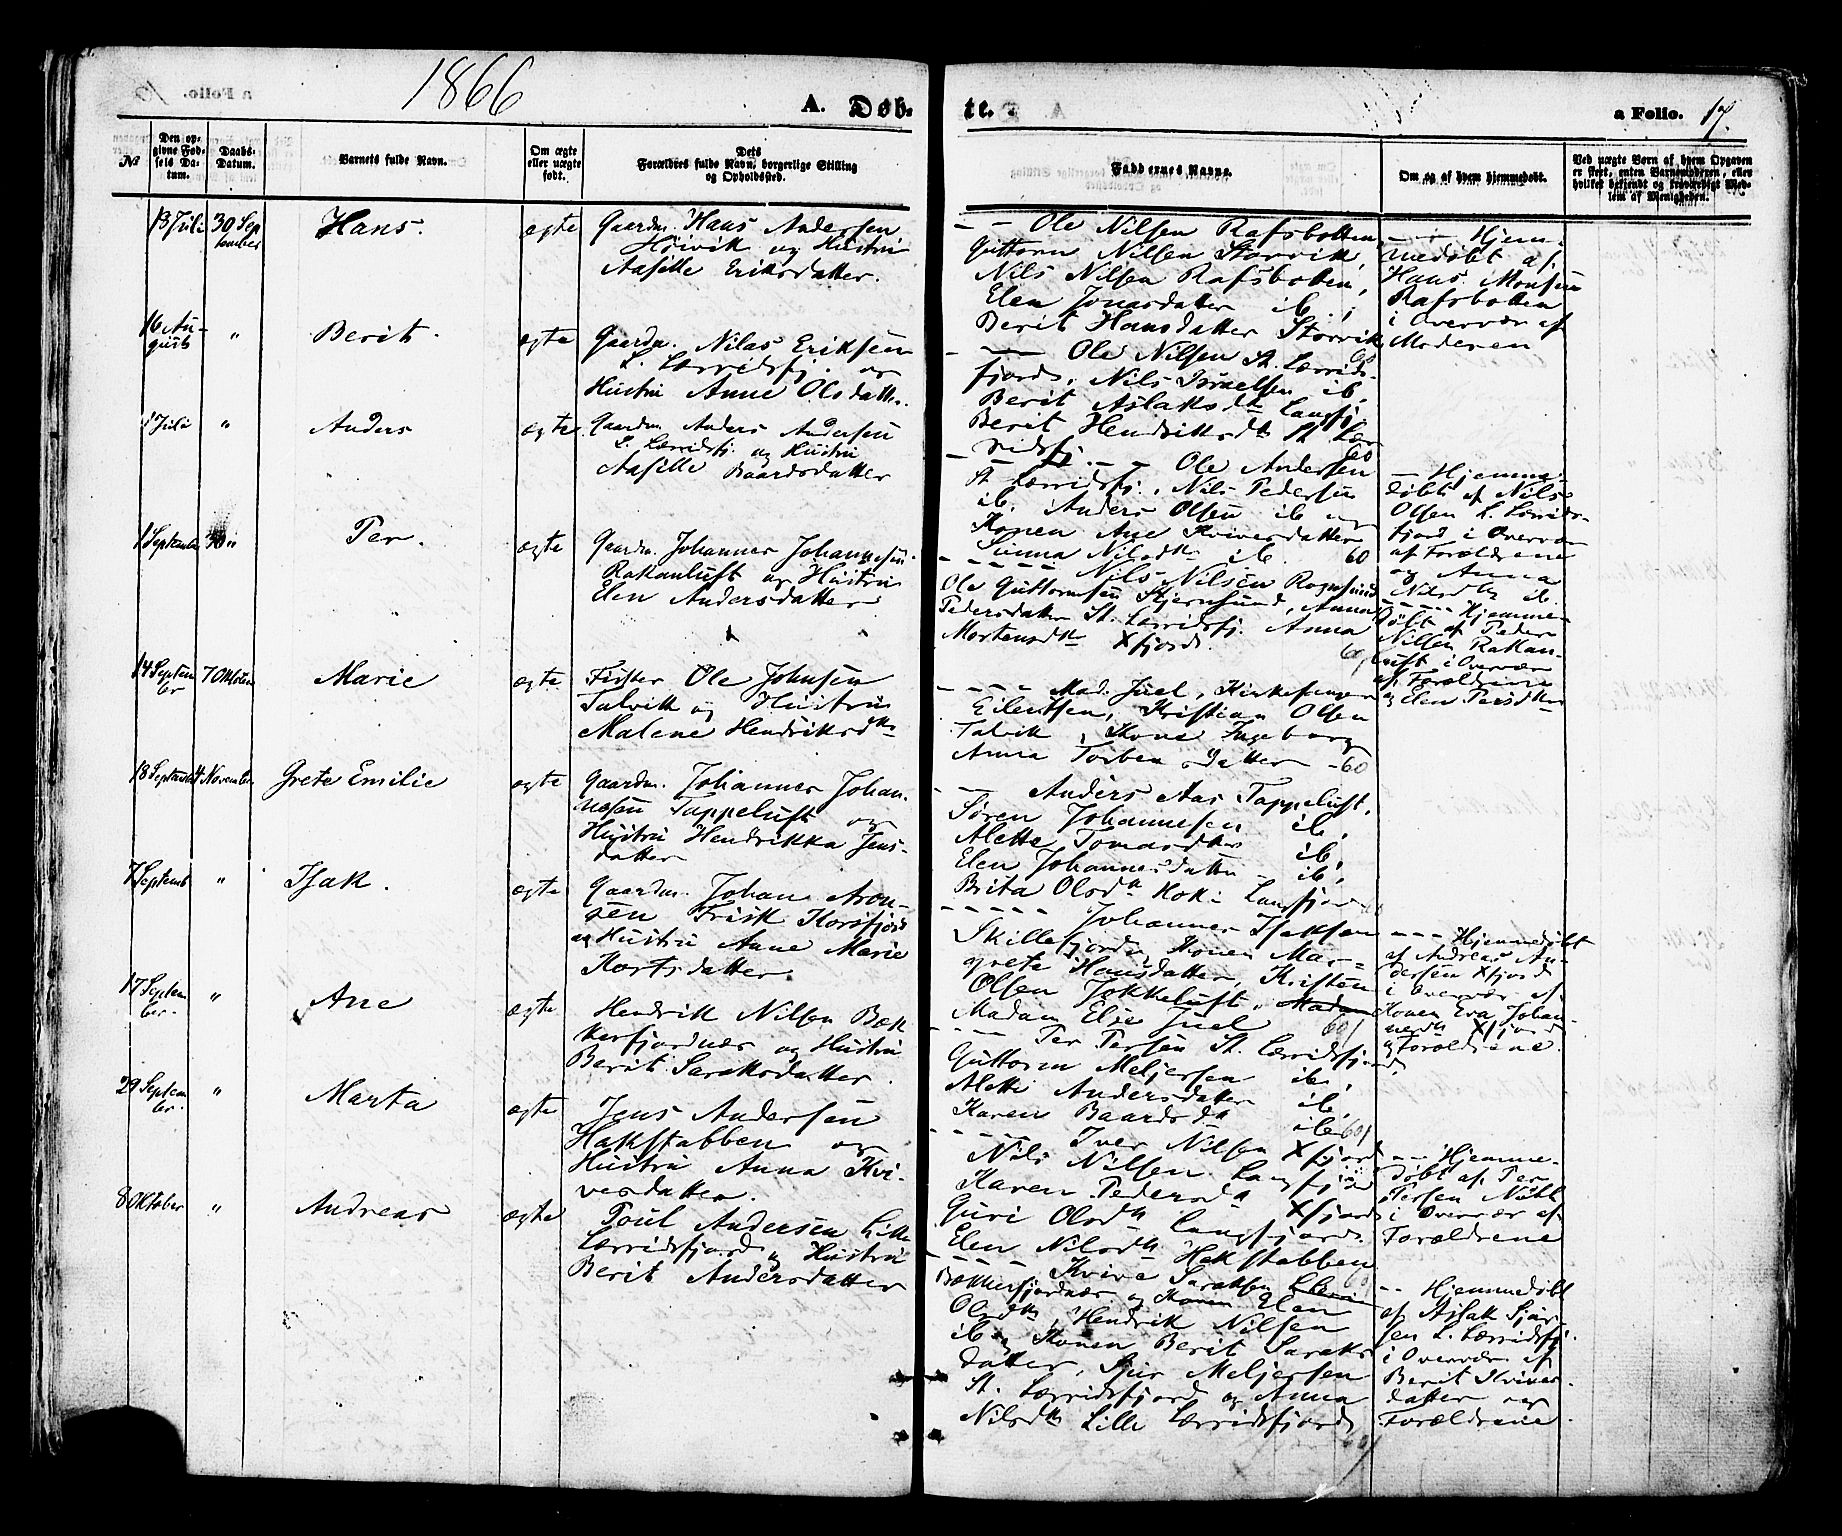 1866
A. Døb-
te.
a Folio. 17.
No
Den op-
givne Fød-
sels Da-
tum.
Daabs-
Datum.
Barnets fulde Navn.
Om ægte
eller uægte
født.
Dets
Forældres fulde Navn, borgerlige Stilling
og Opholdssted.
Faddernes Navne.
Om og af hvem hjemmedøbt.
Ved uægte Børn af hvem Opgaven
er skeet, enten Barnemoderen, eller
hvilket bekjendt og troværdigt Med-
lem af Menigheden.
13 Juli
30 Sep
tember
Hans.
ægte
Gaardm. Hans Andersen
Höivik og Hustru
Aasille Eriksdatter.
- - Ole Nilsen Rafsbotten
Guttorm Nilsen Storvik,
Nils Nilsen Rafsbotten,
Elen Jonasdatter ib.,
Berit Hansdatter Storvik
- - Hjem-
medöbt af
Hans Monsen
Rafsbotten
i Overvær af
Moderen
16 Au-
gust
"
Berit.
ægte
Gaardm. Nilas Eriksen
L. Lerridsfj. og
Hustru Anne Olsdatter.
- - Ole Nilsen St. Lerrids-
fjord, Nils Israelsen ib,
Berit Aslaksdtr Langfj.
Berit Hendriksdtr St. Ler
ridsfj. 60
1 Juli
"
Anders
ægte
Gaardm. Anders Andersen
L. Lerridsfj. og Hustru
Aasille Baardsdatter
- - - Ole Andersen
St. Lerridsfj., Nils Pedersen
ib. Anders Olsen ib og
Konen Ane Kviversdatter
Sinna Nilsdtr ib. 60
- Hjemme-
döbt af Nils
Olsen L. Lerrids-
fjord i Overvær
af Forældrene
og Anna
Nilsdtr ib.
1 September
Per.
ægte
Gaardm. Johannes Johannesen
Rakanluft og Hustru
Elen Andersdatter
- - - - Nils Nilsen Rognsund
Ole Guttormsen Stjernsund, Anna
Pedersdatter St. Lerridsfj. Anna
Mortensdtr Xfjord. 60
- - - Hjemme-
döbt af Peder
Nilsen Rakan-
luft i Overvær
af Forældrene
og Elen Persdtr
14 Septem
ber
7 Oktober
Marie
ægte
Fisker Ole Johnsen
Talvik og Hustru
Malene Hendriksdtr
- - - - Mad. Juel, Kirkesanger
Eilertsen, Kristian Olsen
Talvik, Kone Ingeborg
Anna Torbensdatter - 60
18 September
4 November
Grete Emilie
ægte
Gaardm. Johannes Johan-
nesen Tappeluft og
Hustru Hendrikka Jens-
datter
- - Anders Aas Tappeluft.
Sören Johannesen ib,
Alette Tomasdtr ib,
Elen Johannesdatter - ib,
Brita Olsdtr Langfjor
7 Septemb
"
Isak.
ægte
Gaardm. Johan Aron-
sen Frisk Korsfjord
og Hustru Anne Marie
Kortsdatter
- - - - - Johannes Isaksen
Skillefjord, Konen Mar-
grete Hansdatter, Kristen
Olsen Jokkeluft, Madam
Madam Else Juel 60
- - - Hjemmedöbt
af Andreas An-
dersen Xfjord
i Overvær af
Konen Eva Johan-
nesdtr Xfjord
og Forældrene.
17 Septem
ber.
"
Ane
ægte
Hendrik Nilsen Bæk
kerfjordnær og Hustru
Berit Saraksdatter.
- - - Per Persen St. Lerridsfjord
Guttorm Meljersen ib,
Alette Andersdatter ib,
Karen Baardsd ib 60
29 Septem
ber.
"
Marta
ægte
Jens Andersen
Hakstabben og
Hustru Anna Kvi-
versdatter.
- - - - Iver Nilsen Xfjord
Nils Nilsen Langfjord
Karen Pedersd Xfjord
Guri Olsdtr Langfjord.
Elen Nilsdtr Hakstabben
- - Hjemme-
döbt af Per
Persen
i Overvær af
Forældrene
8 Oktober
"
Andreas
ægte
Poul Andersen Lille
Lerridsfjord og Hustru
Berit Andersdatter
- - - - Kvive Saraksen
Bækkerfjordnær og Konen Elen
Olsdtr, Hendrik Nilsen
ib og Konen Berit Saraks
datter, Sjur Meljersen
St. Lerridsfjord og Anna
Nilsdtr Lille Lerridsfjord
60
- - Hjemmedöbt
af Aslak Sjur-
sen L. Lerridsfj.
i Overvær af
Berit Kvivers-
datter og
Forældrene.